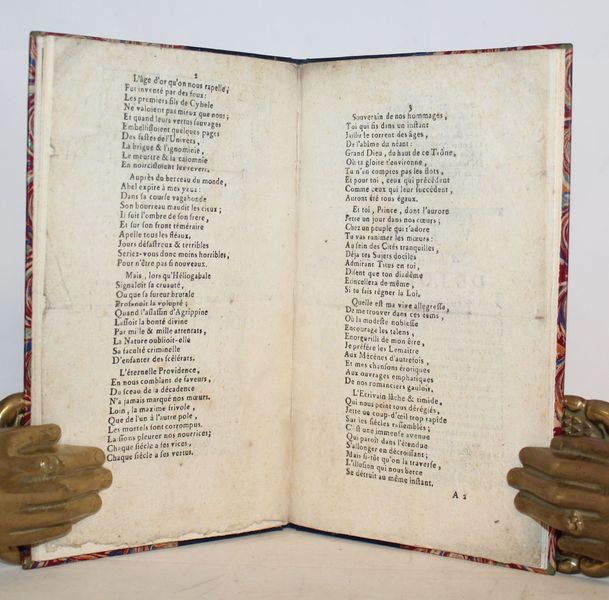 2
L'âge d'or qu'on nous rapelle,
Fut inventé par des foux:
Les premiers fils de Cybele
Ne valoient pas mieux que nous;
Et quand leurs vertus sauvages
Embellissoient quelques pages
Des fastes de l'Univers,
La brigue & l'ignominie,
Le meurtre & la calomnie
En noircissoient les revers.
Auprès du berceau du monde,
Abel expire à mes yeux:
Dans sa course vagabonde
Son bourreau maudit les cieux;
Il fuit l'ombre de son frere,
Et sur son front téméraire
Apelle tous les fléaux.
Jours désastreux & terribles
Seriez-vous donc moins horribles,
Pour n'être pas si nouveaux.
Mais, lors qu'Héliogabale
Signaloit sa cruauté,
Ou que sa fureur brutale
Profanoit la volupté;
Quand l'assassin d'Agrippine
Lassoit la bonté divine
Par mille & mille attentats,
La Nature oublioit-elle
Sa faculté criminelle
D'enfanter des scélérats.
L'éternelle Providence,
En nous comblant de faveurs,
Du sceau de la décadence
N'a jamais marqué nos mœurs.
Loin, la maxime frivole,
Que de l'un à l'autre pole,
Les mortels sont corrompus.
Laissons pleurer nos nourrices;
Chaque siècle a ses vices,
Chaque siècle a ses vertus.
3
Souverain de nos hommages,
Toi qui fis dans un instant
Jaillir le torrent des âges,
De l'abîme du néant:
Grand Dieu, du haut de ce Trône,
Où ta gloire t'environne,
Tu n'en comptes pas les flots,
Et pour toi, ceux qui précèdent
Comme ceux qui leur succèdent,
Auront été tous égaux.
Et toi, Prince, dont l'aurore
Jette un jour dans nos cœurs;
Chez un peuple qui t'adore
Tu vas ranimer les mœurs:
Au sein des Cités tranquilles,
Déja tes Sujets dociles
Admirant Titus en toi,
Disent que ton diadême
Etincellera de même,
Si tu fais régner la Loi.
Quelle est ma vive allegresse,
De me trouver dans ces tems,
Où la modeste noblesse
Encourage les talens,
Enorgueilli de mon être,
Je préfère les Lemaitre
Aux Mécènes d'autrefois,
Et mes chansons érotiques
Aux ouvrages emphatiques
De nos romanciers gaulois.
L'Ecrivain lâche & timide,
Qui nous peint tous déréglés,
Jette un coup-d'œil trop rapide
Sur les siècles rassemblés;
C'est une immense avenue
Qui paroît dans l'étendue
S'allonger en décroissant;
Mais si-tôt qu'on la traverse,
L'illusion qui nous berce
Se détruit au même instant.
A 2